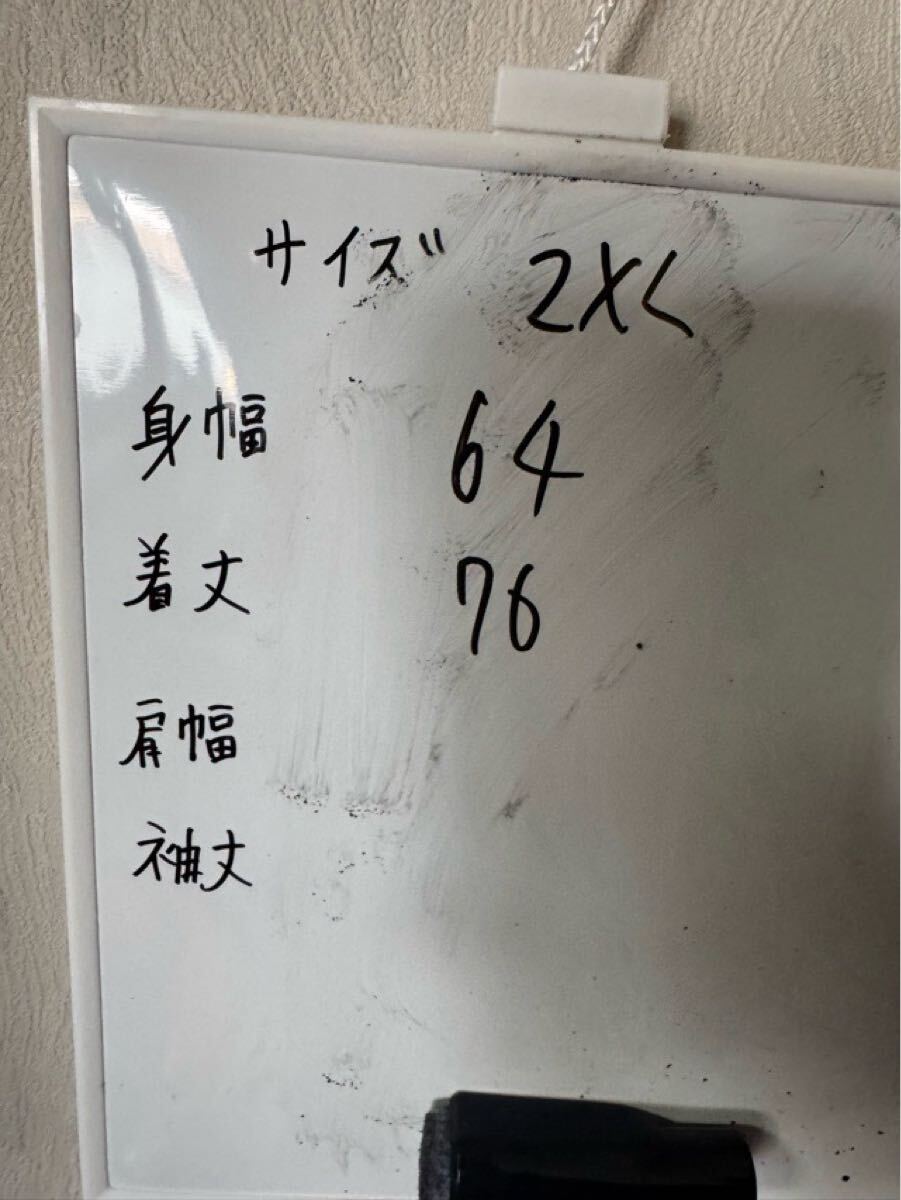 サイズ 2XL
身幅 64
着丈 76
肩幅
袖丈